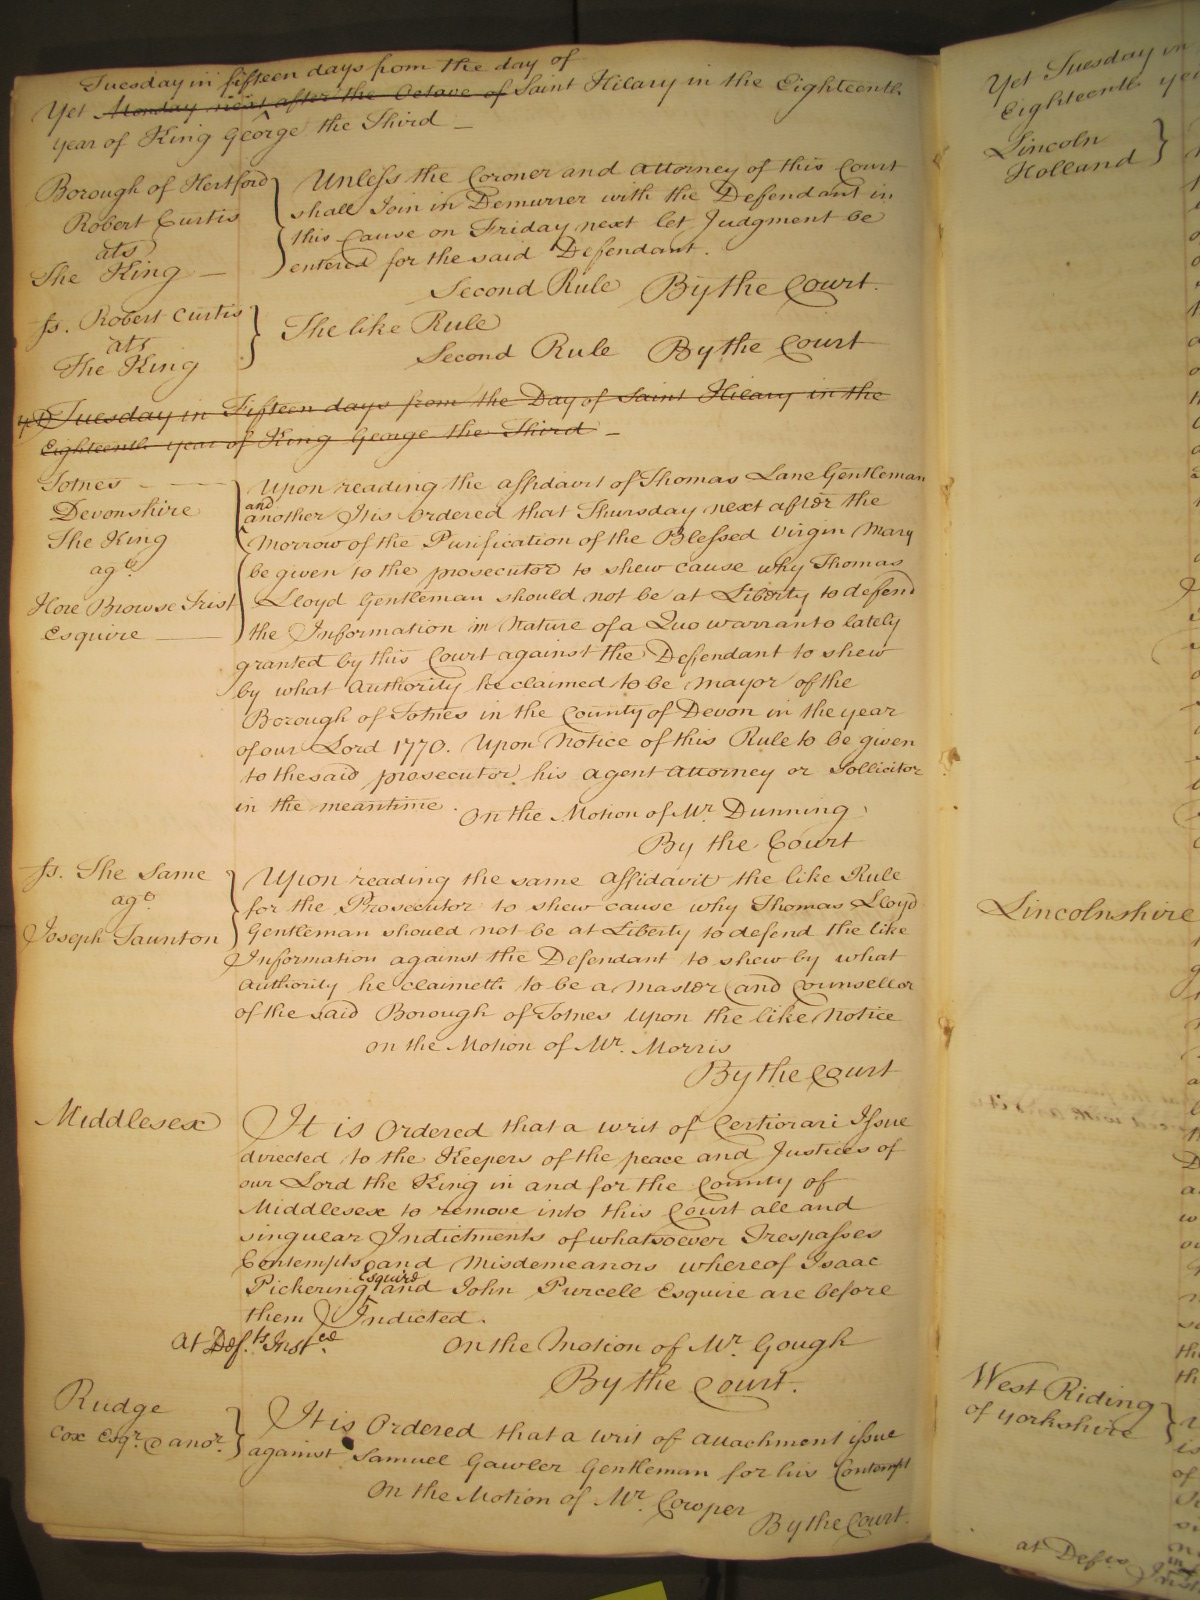 Tuesday in fifteen days from the day of
Yet Monday next after the Octave of Saint Hilary in the Eighteenth
year of King George the Third
Borough of Hertford
Robert Curtis
ats
The King
Unless the Coroner and Attorney of this Court
shall Join in Demurrer with the Defendant in
this Cause on Friday next let Judgment be
entered for the said Defendant.
Second Rule By the Court.
Js. Robert Curtis
ats
The King
The like Rule
Second Rule By the Court
Yet Tuesday in Fifteen days from the Day of Saint Hilary in the
Eighteenth year of King George the Third
Totnes
Devonshire
The King
agt.
Hore Browse Trist
Esquire
Upon reading the affidavit of Thomas Lane Gentleman
and
another It is Ordered that Thursday next after the
Morrow of the Purification of the Blessed Virgin Mary
be given to the prosecutor to shew cause why Thomas
Lloyd Gentleman should not be at Liberty to defend
the Information in Nature of a Quo warranto lately
granted by this Court against the Defendant to shew
by what Authority he claimed to be Mayor of the
Borough of Totnes in the County of Devon in the year
of our Lord 1770. Upon Notice of this Rule to be given
to the said prosecutor his agent attorney or Sollicitor
in the meantime.
On the Motion of Mr. Dunning
By the Court
Js. The Same
agt.
Joseph Taunton
Upon reading the same Affidavit the like Rule
for the Prosecutor to shew cause why Thomas Lloyd
Gentleman should not be at Liberty to defend the like
Information against the Defendant to shew by what
Authority he claimeth to be a Master and Counsellor
of the said Borough of Totnes Upon the like Notice
On the Motion of Mr. Morris
By the Court
Middlesex
It is Ordered that a writ of Certiorari Issue
directed to the Keepers of the peace and Justices of
our Lord the King in and for the County of
Middlesex to remove into this Court all and
singular Indictments of whatsoever Trespasses
Contempts and Misdemeanors whereof Isaac
Esquire
Pickering and John Purcell Esquire are before
them Indicted.
At Def.ts Inst.ce
On the Motion of Mr. Gough
By the Court.
Rudge
Cox Esqr. & anor.
It is Ordered that a writ of attachment issue
against Samuel Gawler Gentleman for his Contempt
On the Motion of Mr. Cowper
By the Court.
Yet Tuesday in
Eighteenth
Lincoln
Holland
Lincolnshire
West Riding
of Yorkshire
at Defts